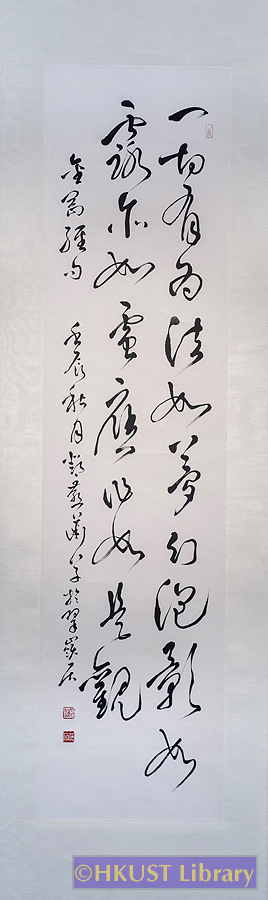 一切有為法如夢幻泡影如
露亦如電應作如是觀
金剛經句 壬辰秋月 草於翠居
©HKUST Library